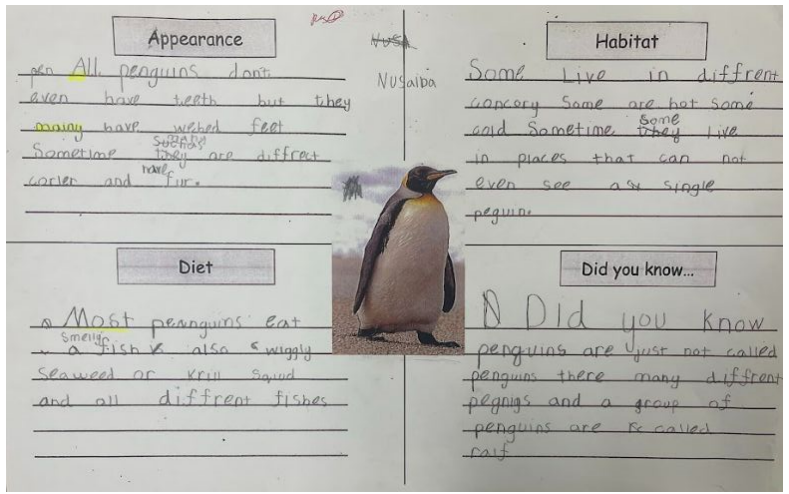 Appearance
All penguins dont
even have teeth but they
mainy have webed feet
Sometime they are diffrect
corler and have fur.
NUSA
NUSaiba
Habitat
Some Live in diffrent
concory Some are hot Some
cold Sometime they some Live
in places that can not
even see a single
peguin.
Diet
Most penngums eat
a smelly fish also wiggly
Seaweed or Krill Squid
and all diffrent fishes
Did you know...
Did you know
penguins are just not called
penguins there many diffrent
pegnigs and a group of
penguins are called
raif